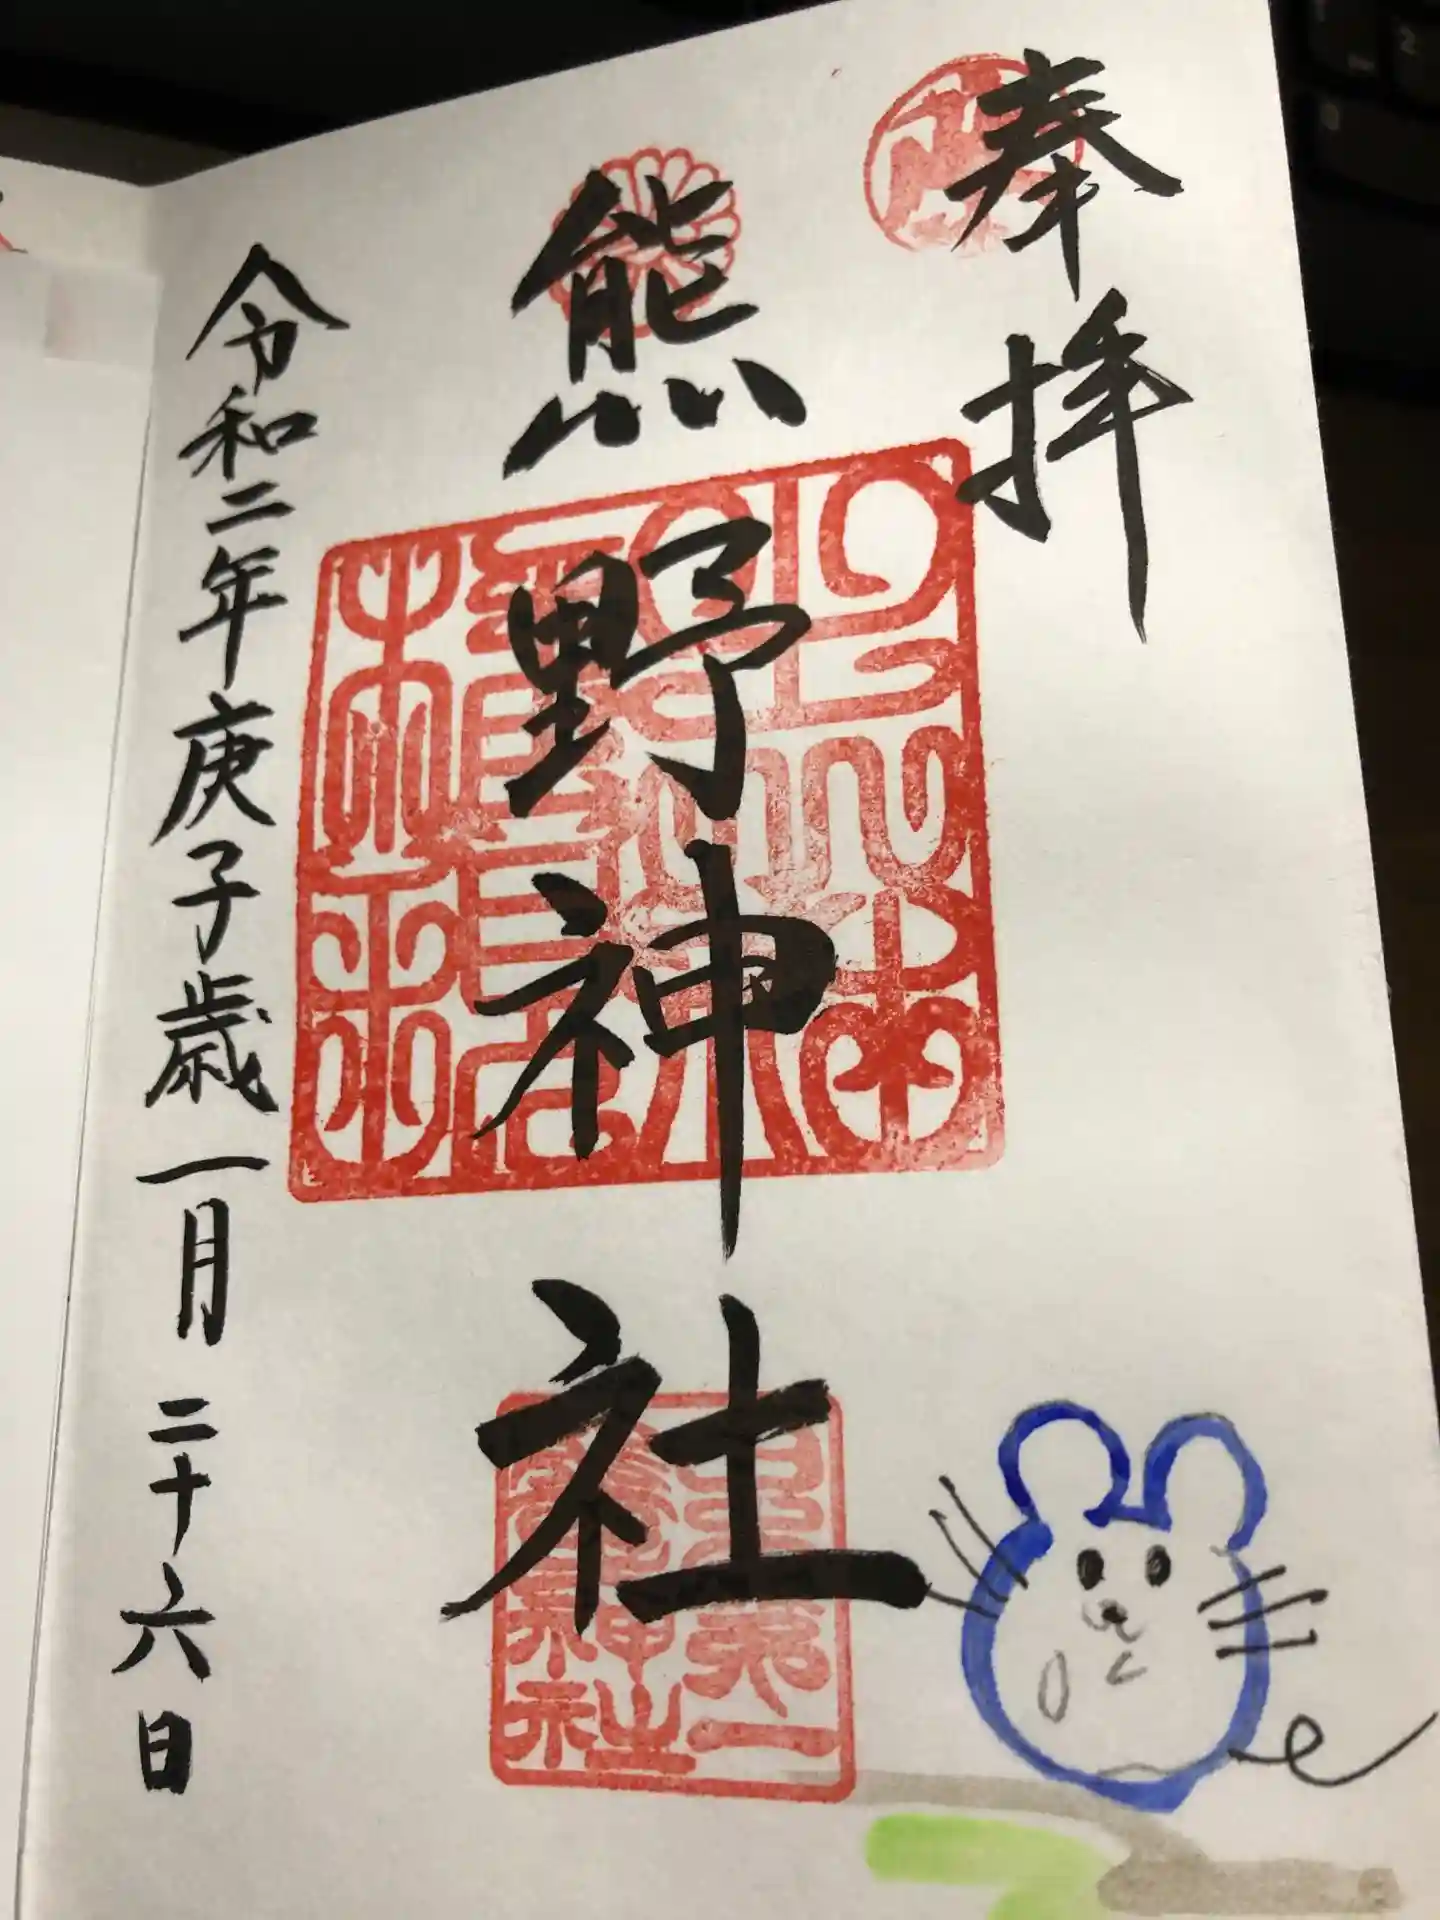 奉拝
熊野神社
令和二年庚子歳一月二十六日